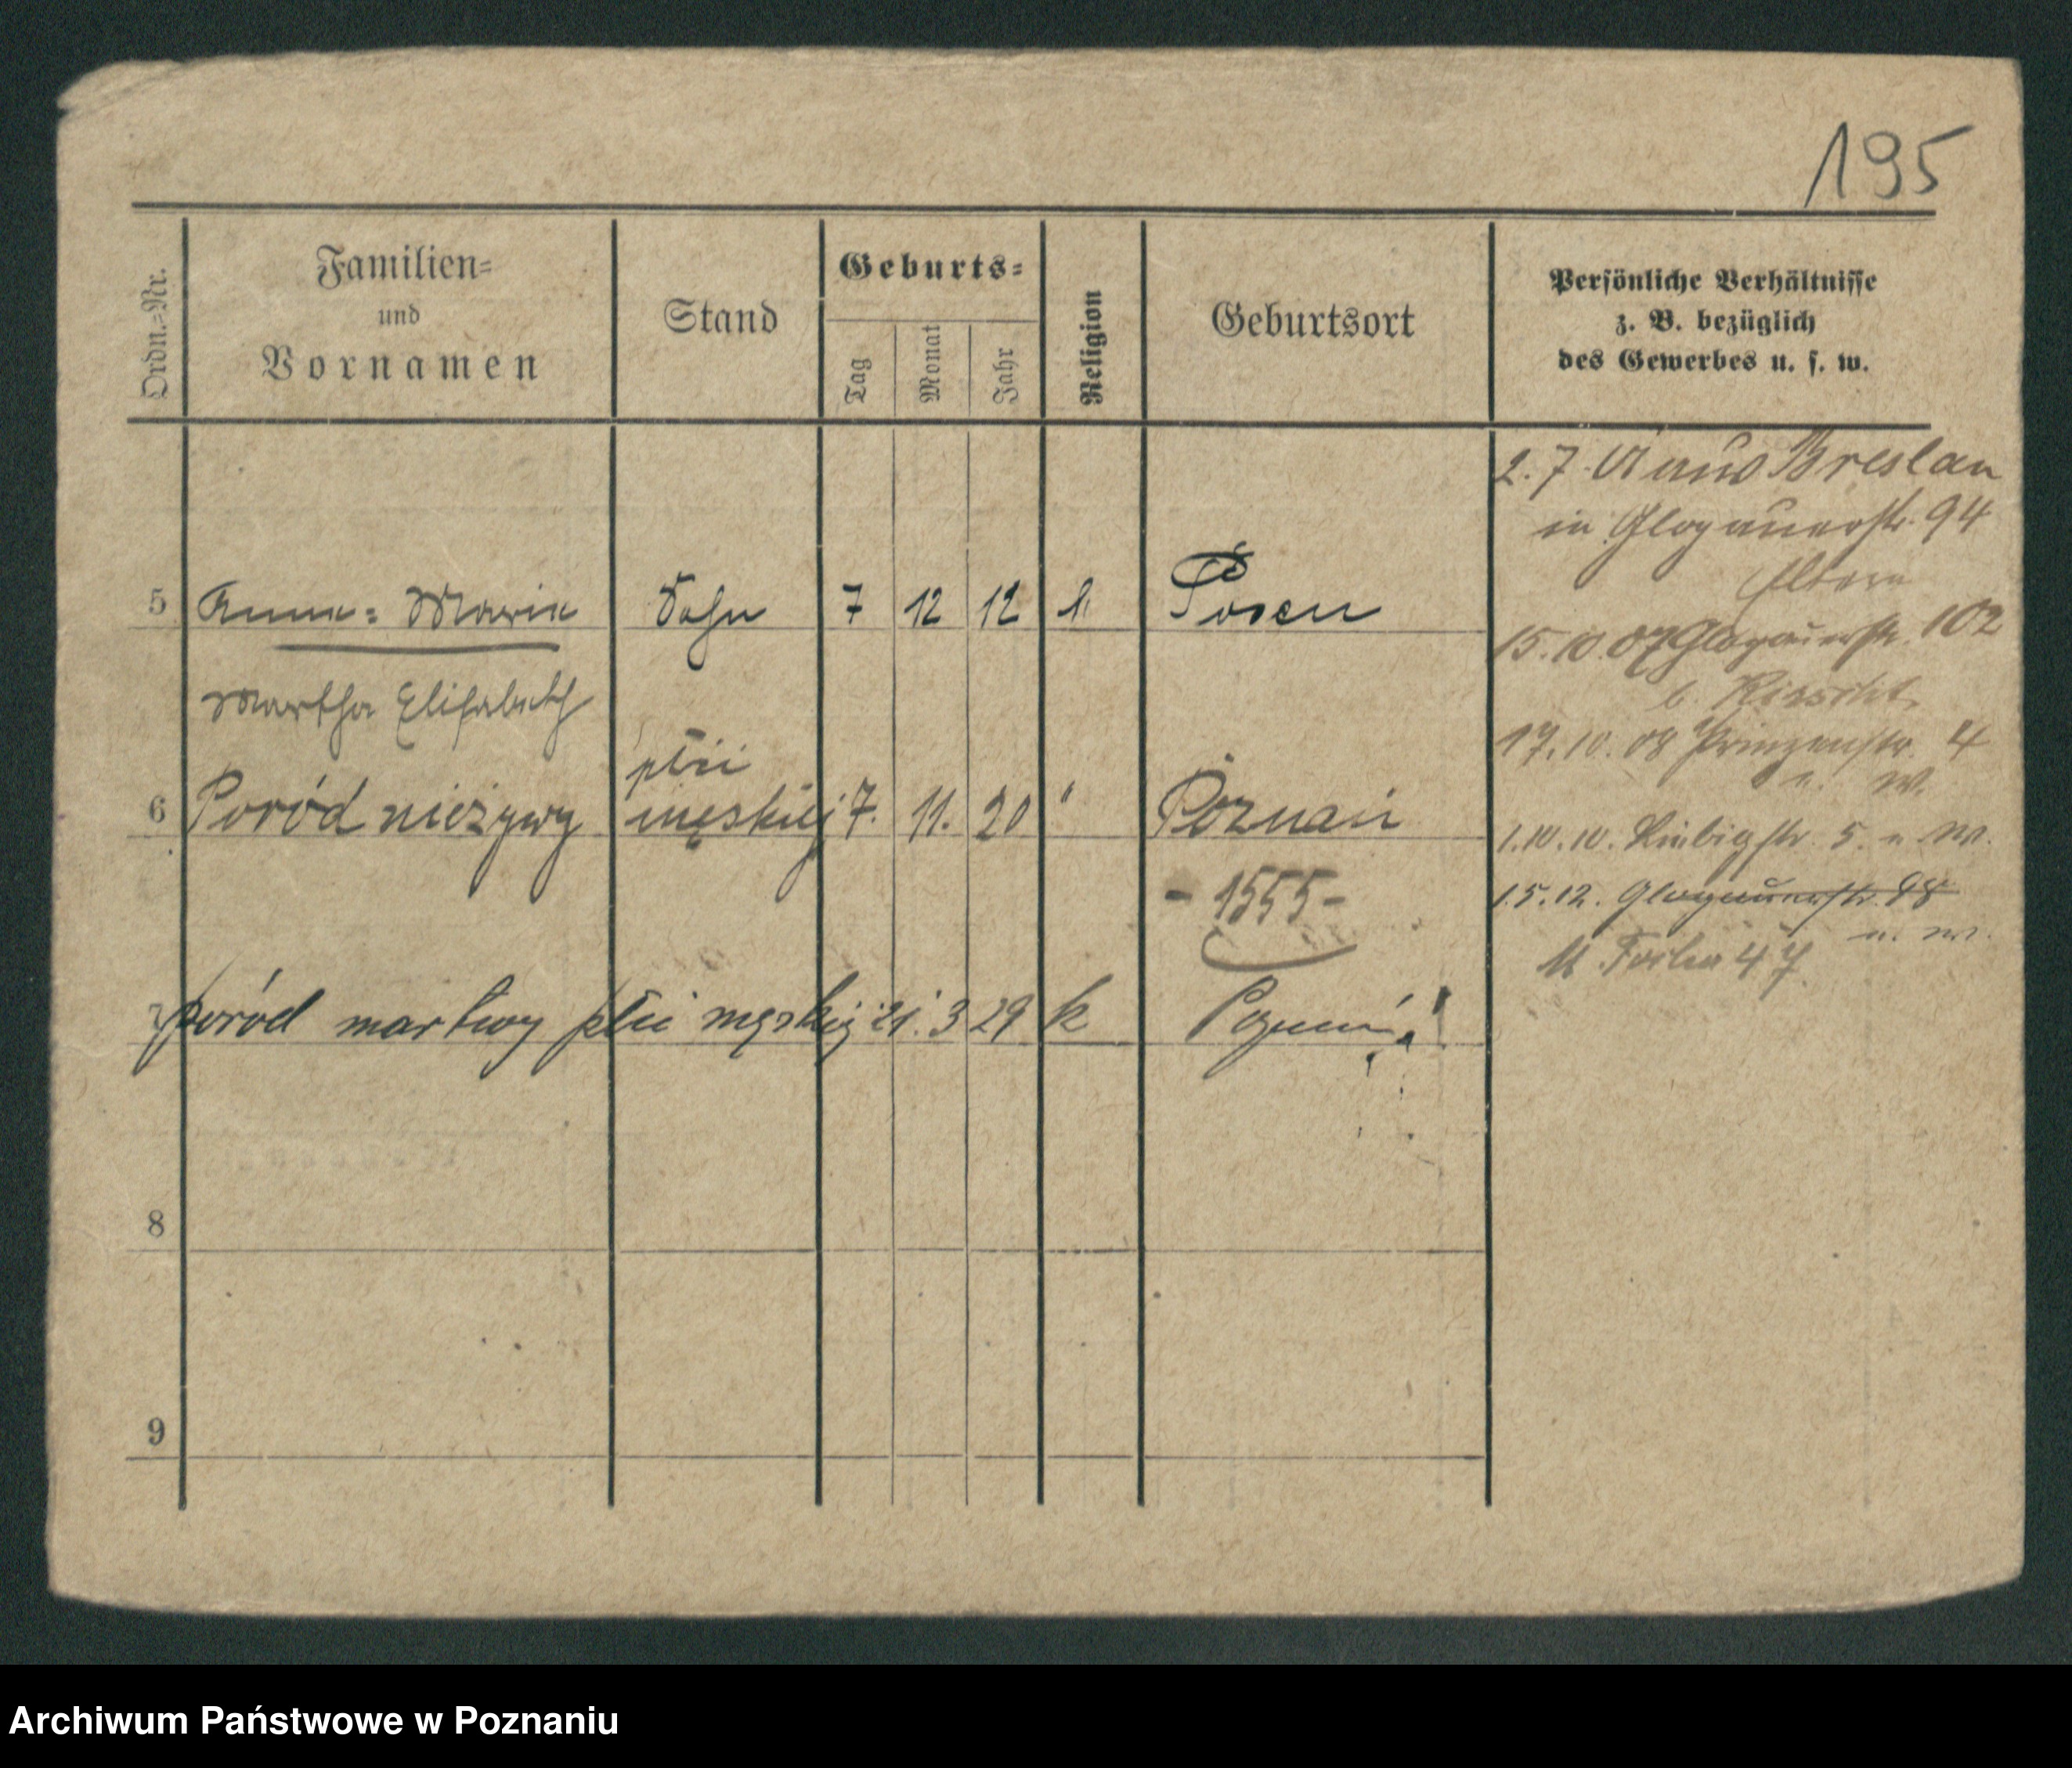 195
Ordn.-Nr.
Familien-
und
Vornamen
Stand
Geburts-
Tag
Monat
Jahr
Religion
Geburtsort
Persönliche Verhältnisse
z. B. bezüglich
des Gewerbes u. s. w.
5 Anna-Maria 7 12 12 Posen
Martha Elisabeth
płci
6 Poród nieżywy męskiej 7. 11. 20 " Poznań
- 1555 -
7 poród martwy płci męskiej 21. 3 29 k Poznań
8
9
2.7. aus Breslau
in Glogauerstr. 94
Eltern
15.10.07 Glogauerstr. 102
b.
17.10.08 Prinzenstr. 4
u. W.
1.10.10. Liebigstr. 5. u. W.
1.5.12. Glogauerstr. 98
u. W.
47
Archiwum Państwowe w Poznaniu